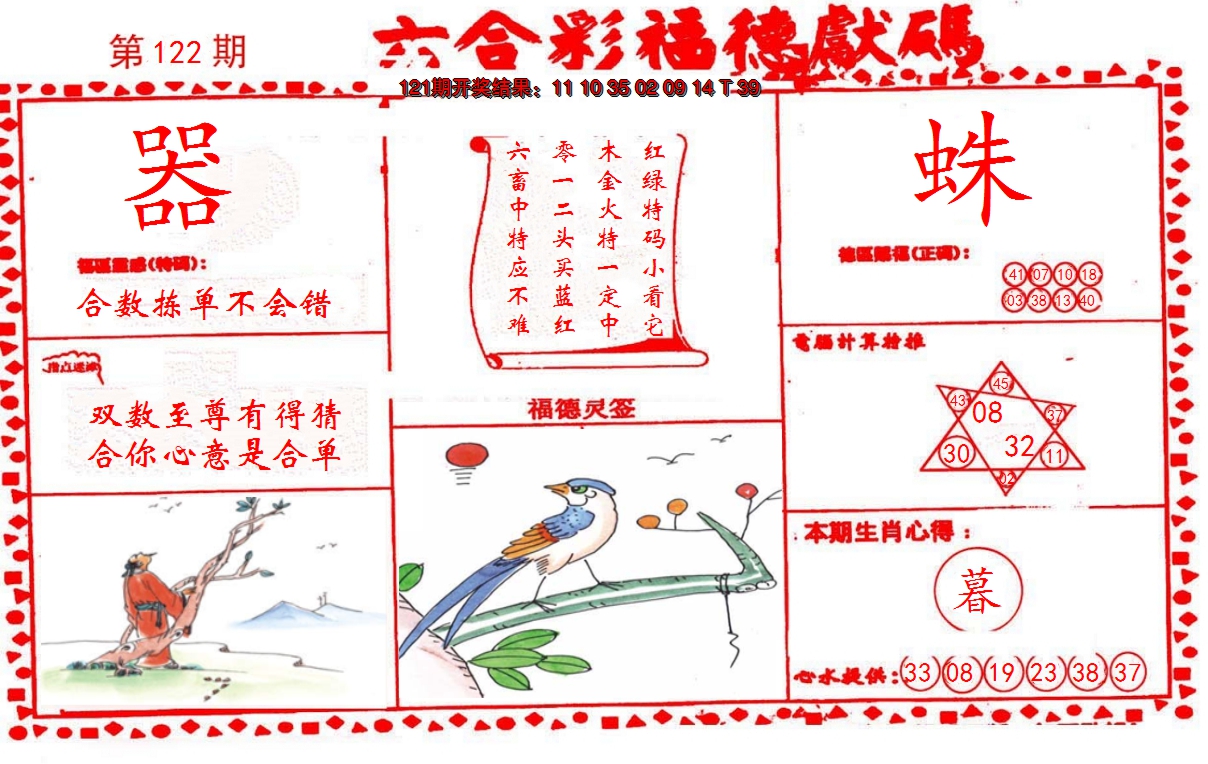 第122期
六合彩福德獻碼
121期开奖结果：11 10 35 02 09 14 T 39
器
福區靈感(特碼)：
合数拣单不会错
指点迷津
双数至尊有得猜
合你心意是合单
红绿特码小看它
木金火特一定中
零一二头买蓝红
六畜中特应不难
福德灵签
蛛
德區賜福(正碼)：
41 07 10 18
03 38 13 40
電腦計算檢推
45
43 08 37
30 32 11
02
本期生肖心得：
暮
心水提供：33 08 19 23 38 37